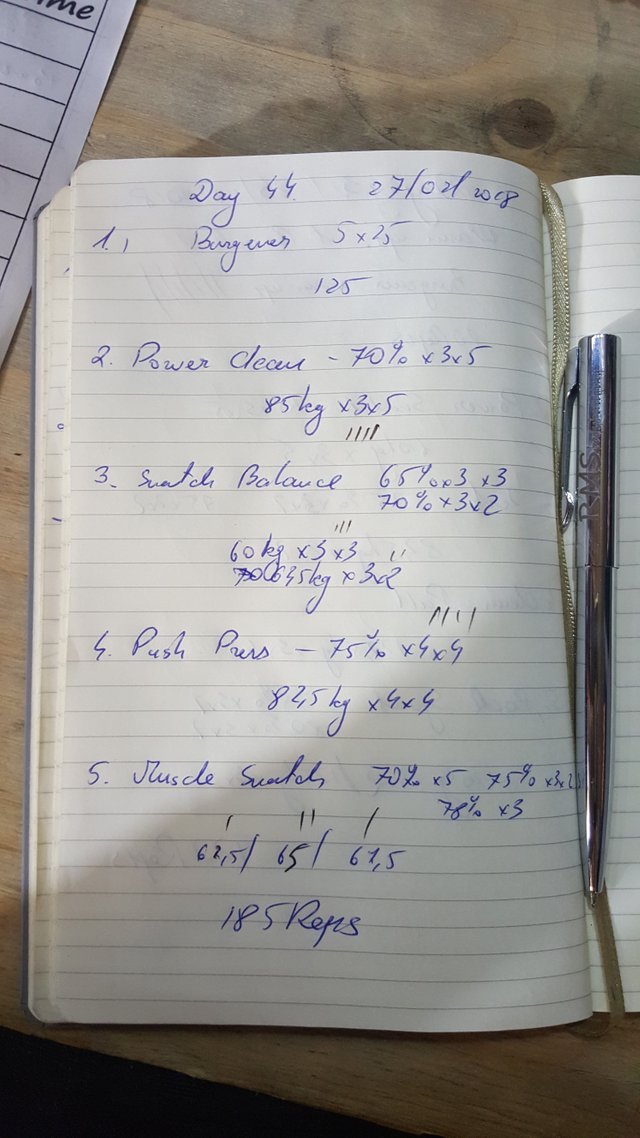 ime
Day 44. 27/02/2018
1, Burgener 5x25
125
2. Power Clean - 70% x3x5
85kg x3x5
3. Snatch Balance 65% x3 x3
70% x3x2
60kg x3x3
67,5kg x3x2
4. Push Press - 75% x4x4
82,5kg x4x4
5. Muscle Snatch 70% x5 75% x3x2
78% x3
62,5/ 65/ 67,5
185 Reps
RMS